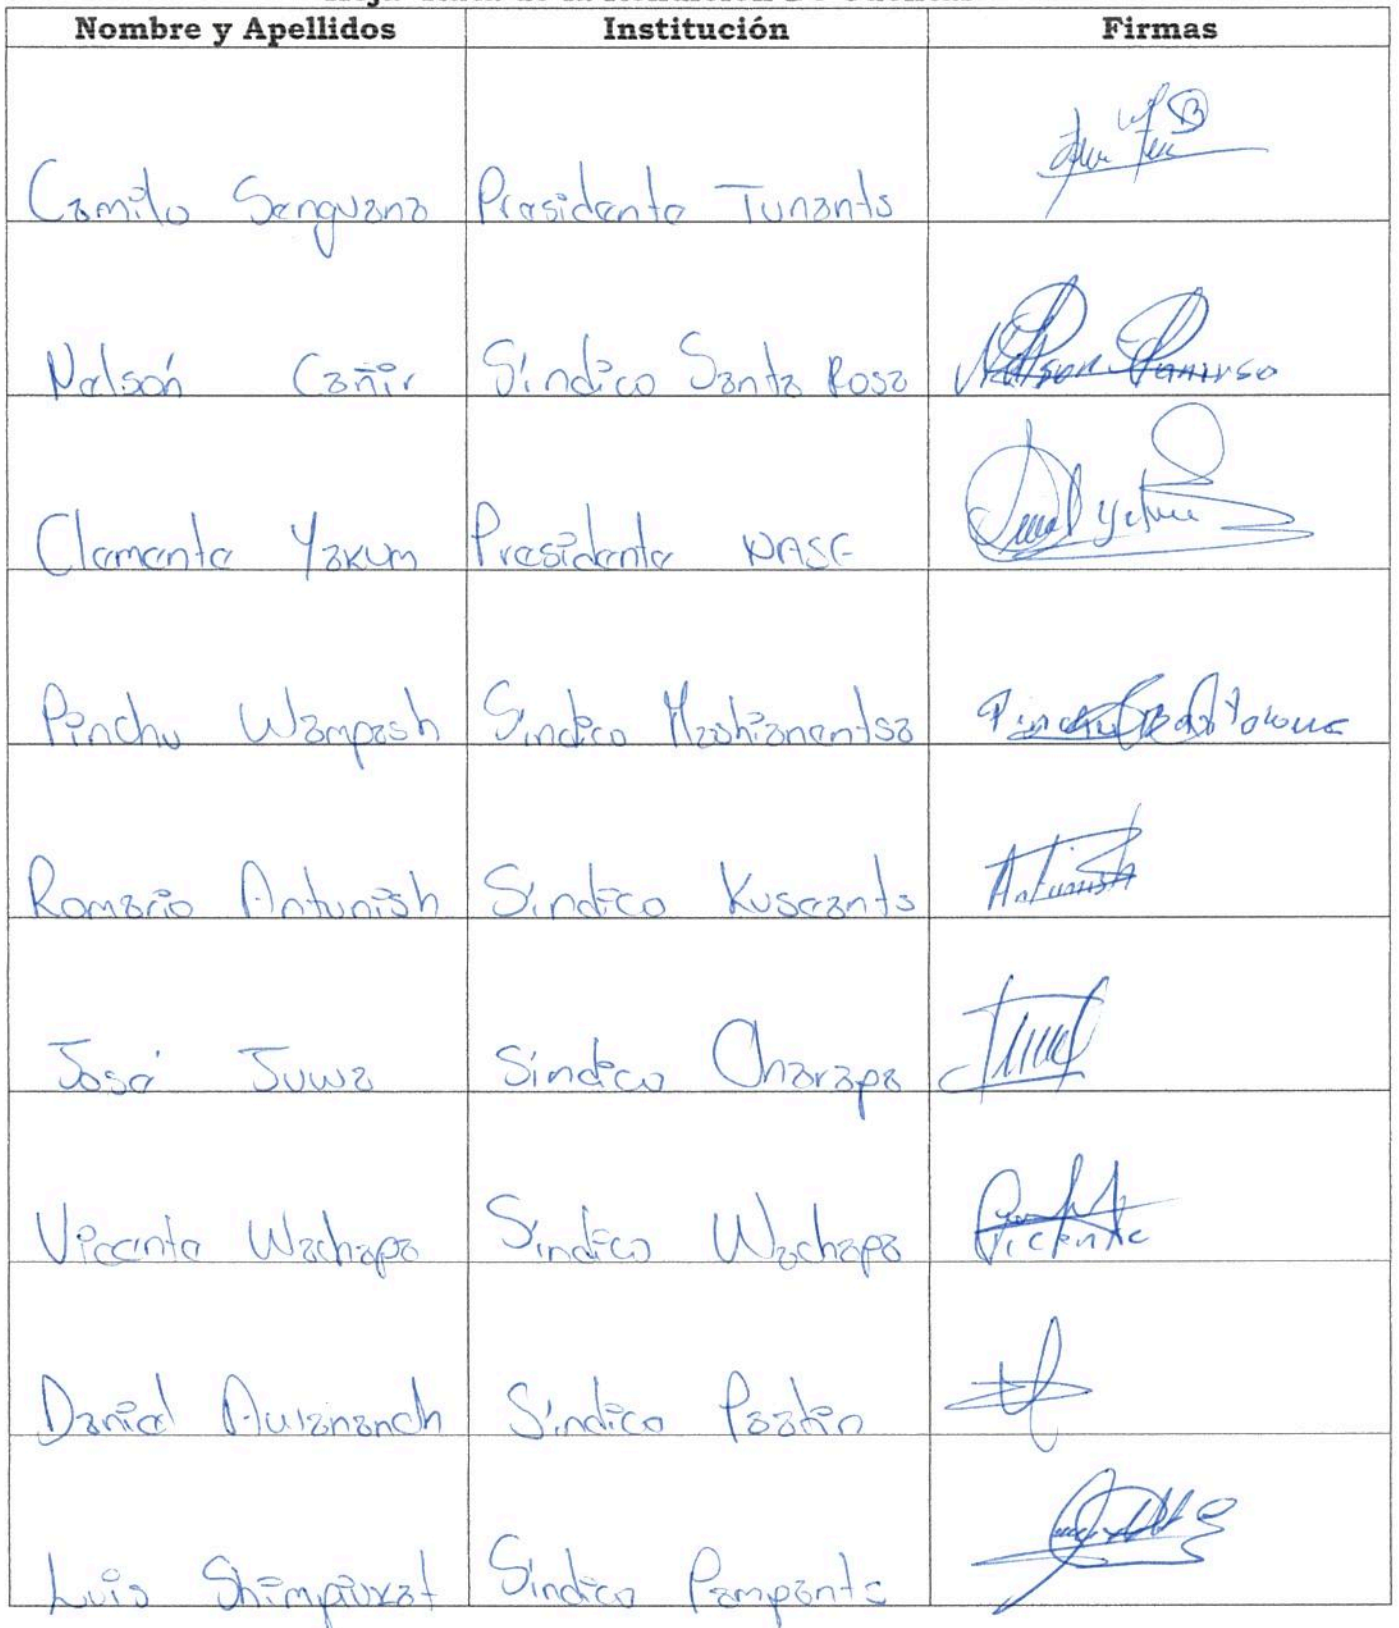 Nombre y Apellidos Institución Firmas
Camilo Senguana Presidente Tunants
Nelsón Cañir Síndico Santa Rosa
Clemente Yakum Presidente NASE
Pinchu Wampash Síndico Mashianentsa
Romario Antunish Síndico Kuseants Antunish
José Juwa Síndico Charapa
Vicente Wachapa Síndico Wachapa Vicente
Daniel Awananch Síndico Paatin
Luis Shimpiukat Síndico Pampants